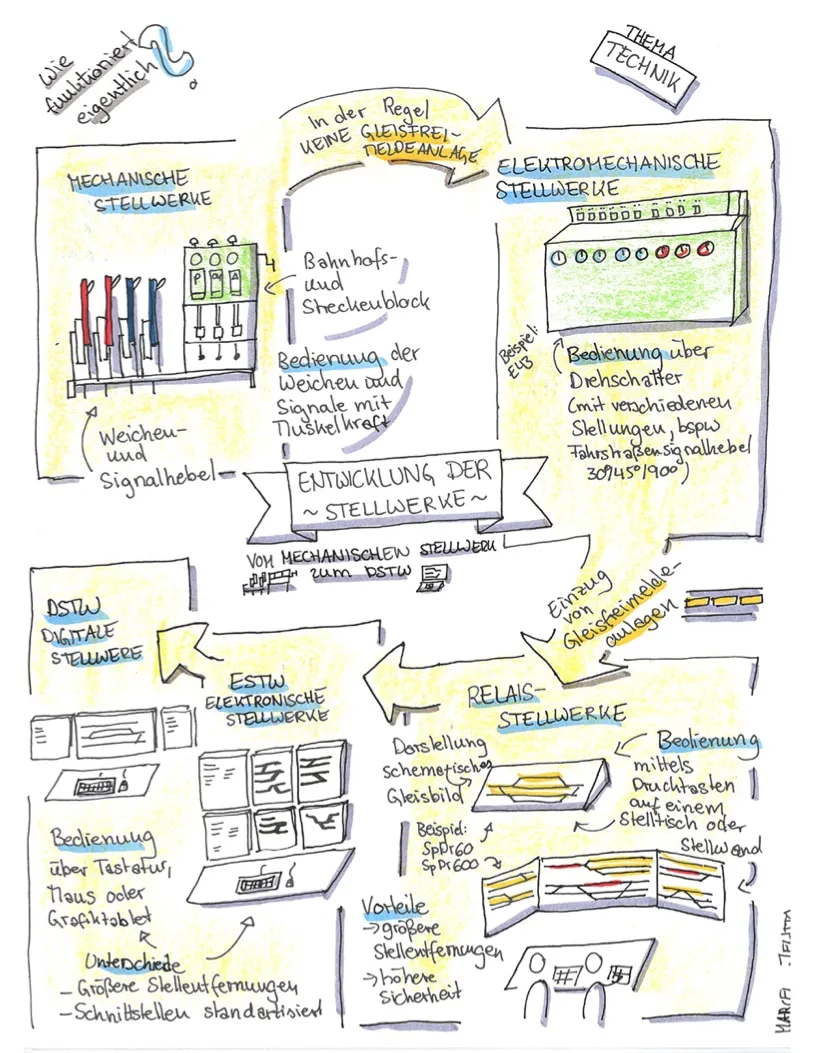 Wie
funktioniert
eigentlich
THEMA
TECHNIK
In der Regel
KEINE GLEISFREI-
MELDEANLAGE
MECHANISCHE
STELLWERKE
Bahnhofs-
und
Streckenblock
Bedienung der
Weichen und
Signale mit
Muskelkraft
Weichen-
und
Signalhebel
ELEKTROMECHANISCHE
STELLWERKE
Beispiel:
E43
Bedienung über
Drehschalter
(mit verschiedenen
Stellungen, bspw
Fahrstraßensignalhebel
30°/45°/90°)
ENTWICKLUNG DER
~ STELLWERKE ~
VOM MECHANISCHEN STELLWERK
ZUM DSTW
Einzug
von
Gleisfreimelde-
anlagen
RELAIS-
STELLWERKE
Darstellung
schematisches
Gleisbild
Beispiel:
SpDr60
SpDr600
Bedienung
mittels
Drucktasten
auf einem
Stelltisch oder
Stellwand
Vorteile
→ größere
Stellentfernungen
→ höhere
Sicherheit
ESTW
ELEKTRONISCHE
STELLWERKE
DSTW
DIGITALE
STELLWERE
Bedienung
über Tastatur,
Maus oder
Grafiktablet
Unterschiede
- Größere Stellentfernungen
- Schnittstellen standartisiert